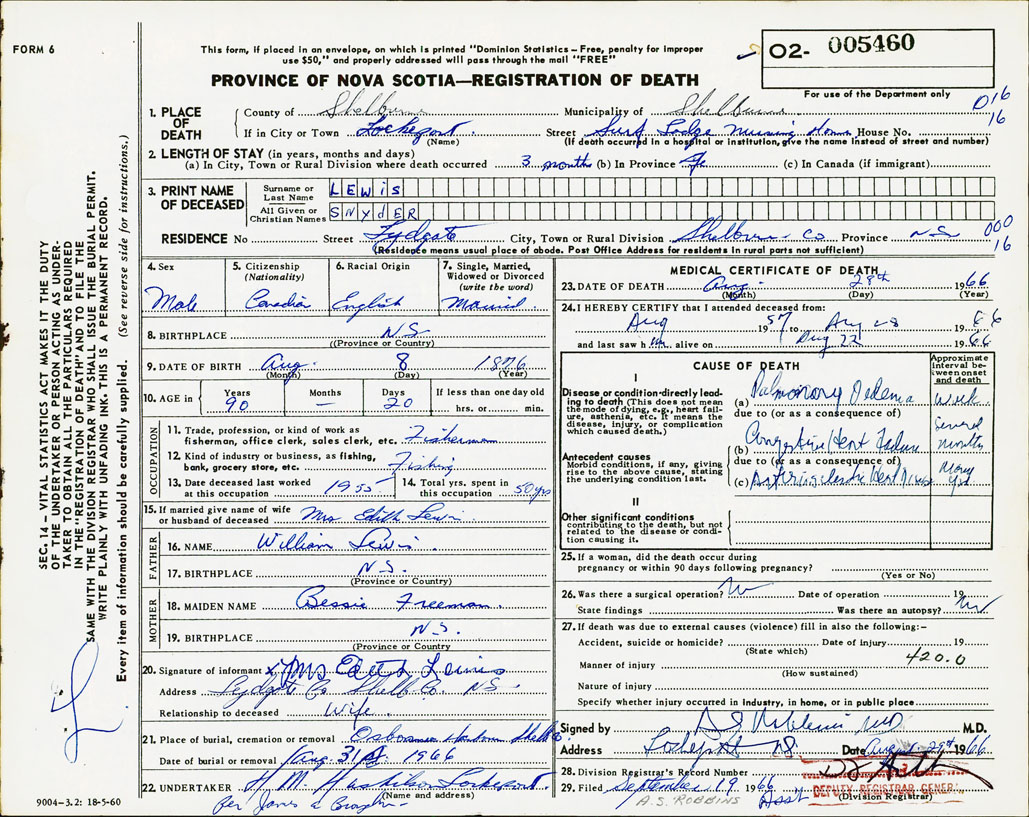 FORM 6
This form, if placed in an envelope, on which is printed "Dominion Statistics – Free, penalty for improper
use $50," and properly addressed will pass through the mail "FREE"
02- 005460
For use of the Department only
PROVINCE OF NOVA SCOTIA—REGISTRATION OF DEATH
016
16
1. PLACE OF DEATH
County of Shelburne Municipality of Shelburne
If in City or Town Lockeport Street Surf Lodge Nursing Home House No.
(Name) (If death occurred in a hospital or institution, give the name instead of street and number)
2. LENGTH OF STAY (in years, months and days)
(a) In City, Town or Rural Division where death occurred 3 months (b) In Province (c) In Canada (if immigrant)
3. PRINT NAME OF DECEASED
Surname or Last Name LEWIS
All Given or Christian Names SNYdER
RESIDENCE No Street Lydgate City, Town or Rural Division Shelburne Co Province N S
(Residence means usual place of abode. Post Office Address for residents in rural parts not sufficient)
000
16
4. Sex
Male
5. Citizenship
(Nationality)
Canadian
6. Racial Origin
English
7. Single, Married,
Widowed or Divorced
(write the word)
Married
8. BIRTHPLACE N.S.
(Province or Country)
9. DATE OF BIRTH Aug. 8 1876
(Month) (Day) (Year)
10. AGE in Years 90 Months — Days 20 If less than one day old
hrs. or min.
OCCUPATION
11. Trade, profession, or kind of work as
fisherman, office clerk, sales clerk, etc. Fisherman
12. Kind of industry or business, as fishing,
bank, grocery store, etc. Fishing
13. Date deceased last worked
at this occupation 1955
14. Total yrs. spent in
this occupation 50 yrs
15. If married give name of wife
or husband of deceased Mrs Edith Lewis
FATHER
16. NAME William Lewis
17. BIRTHPLACE N.S.
(Province or Country)
MOTHER
18. MAIDEN NAME Bessie Freeman
19. BIRTHPLACE N.S.
(Province or Country)
20. Signature of informant x Mrs Edith Lewis
Address Lydgate Co Shelb Co. N S.
Relationship to deceased Wife.
21. Place of burial, cremation or removal Osborne Harbour Shelb Co
Date of burial or removal Aug. 31st 1966
22. UNDERTAKER H. M. Lockeport
(Name and address)
Per James a
9004–3.2: 18-5-60
MEDICAL CERTIFICATE OF DEATH
23. DATE OF DEATH Aug. 28th 1966
(Month) (Day) (Year)
24. I HEREBY CERTIFY that I attended deceased from:
Aug 1957 to Aug 28 1966
and last saw him alive on Aug 22 1966
CAUSE OF DEATH
Approximate interval between onset and death
I
Disease or condition directly leading to death (This does not mean the mode of dying, e.g., heart failure, asthenia, etc. It means the disease, injury, or complication which caused death.)
(a) Pulmonary Oedema week
due to (or as a consequence of)
Antecedent causes
Morbid conditions, if any, giving rise to the above cause, stating the underlying condition last.
(b) Congestive Heart Failure Several months
due to (or as a consequence of)
(c) Arteriosclerotic Heart Disease Many yrs
II
Other significant conditions
contributing to the death, but not related to the disease or condition causing it.
25. If a woman, did the death occur during
pregnancy or within 90 days following pregnancy?
(Yes or No)
26. Was there a surgical operation? No Date of operation 19
State findings Was there an autopsy? No
27. If death was due to external causes (violence) fill in also the following:–
Accident, suicide or homicide? Date of injury 19
(State which)
420.0
Manner of injury
(How sustained)
Nature of injury
Specify whether injury occurred in Industry, in home, or in public place
Signed by M.D.
Address Lockeport NS Date August 29th 1966
28. Division Registrar's Record Number
29. Filed September 19 1966
(Division Registrar)
A.S. ROBBINS
Asst DEPUTY REGISTRAR GENERAL
SEC. 14 – VITAL STATISTICS ACT MAKES IT THE DUTY
OF THE UNDERTAKER OR PERSON ACTING AS UNDER-
TAKER TO OBTAIN ALL THE PARTICULARS REQUIRED
IN THE "REGISTRATION OF DEATH" AND TO FILE THE
SAME WITH THE DIVISION REGISTRAR WHO SHALL ISSUE THE BURIAL PERMIT.
WRITE PLAINLY WITH UNFADING INK. THIS IS A PERMANENT RECORD.
Every item of information should be carefully supplied. (See reverse side for instructions.)